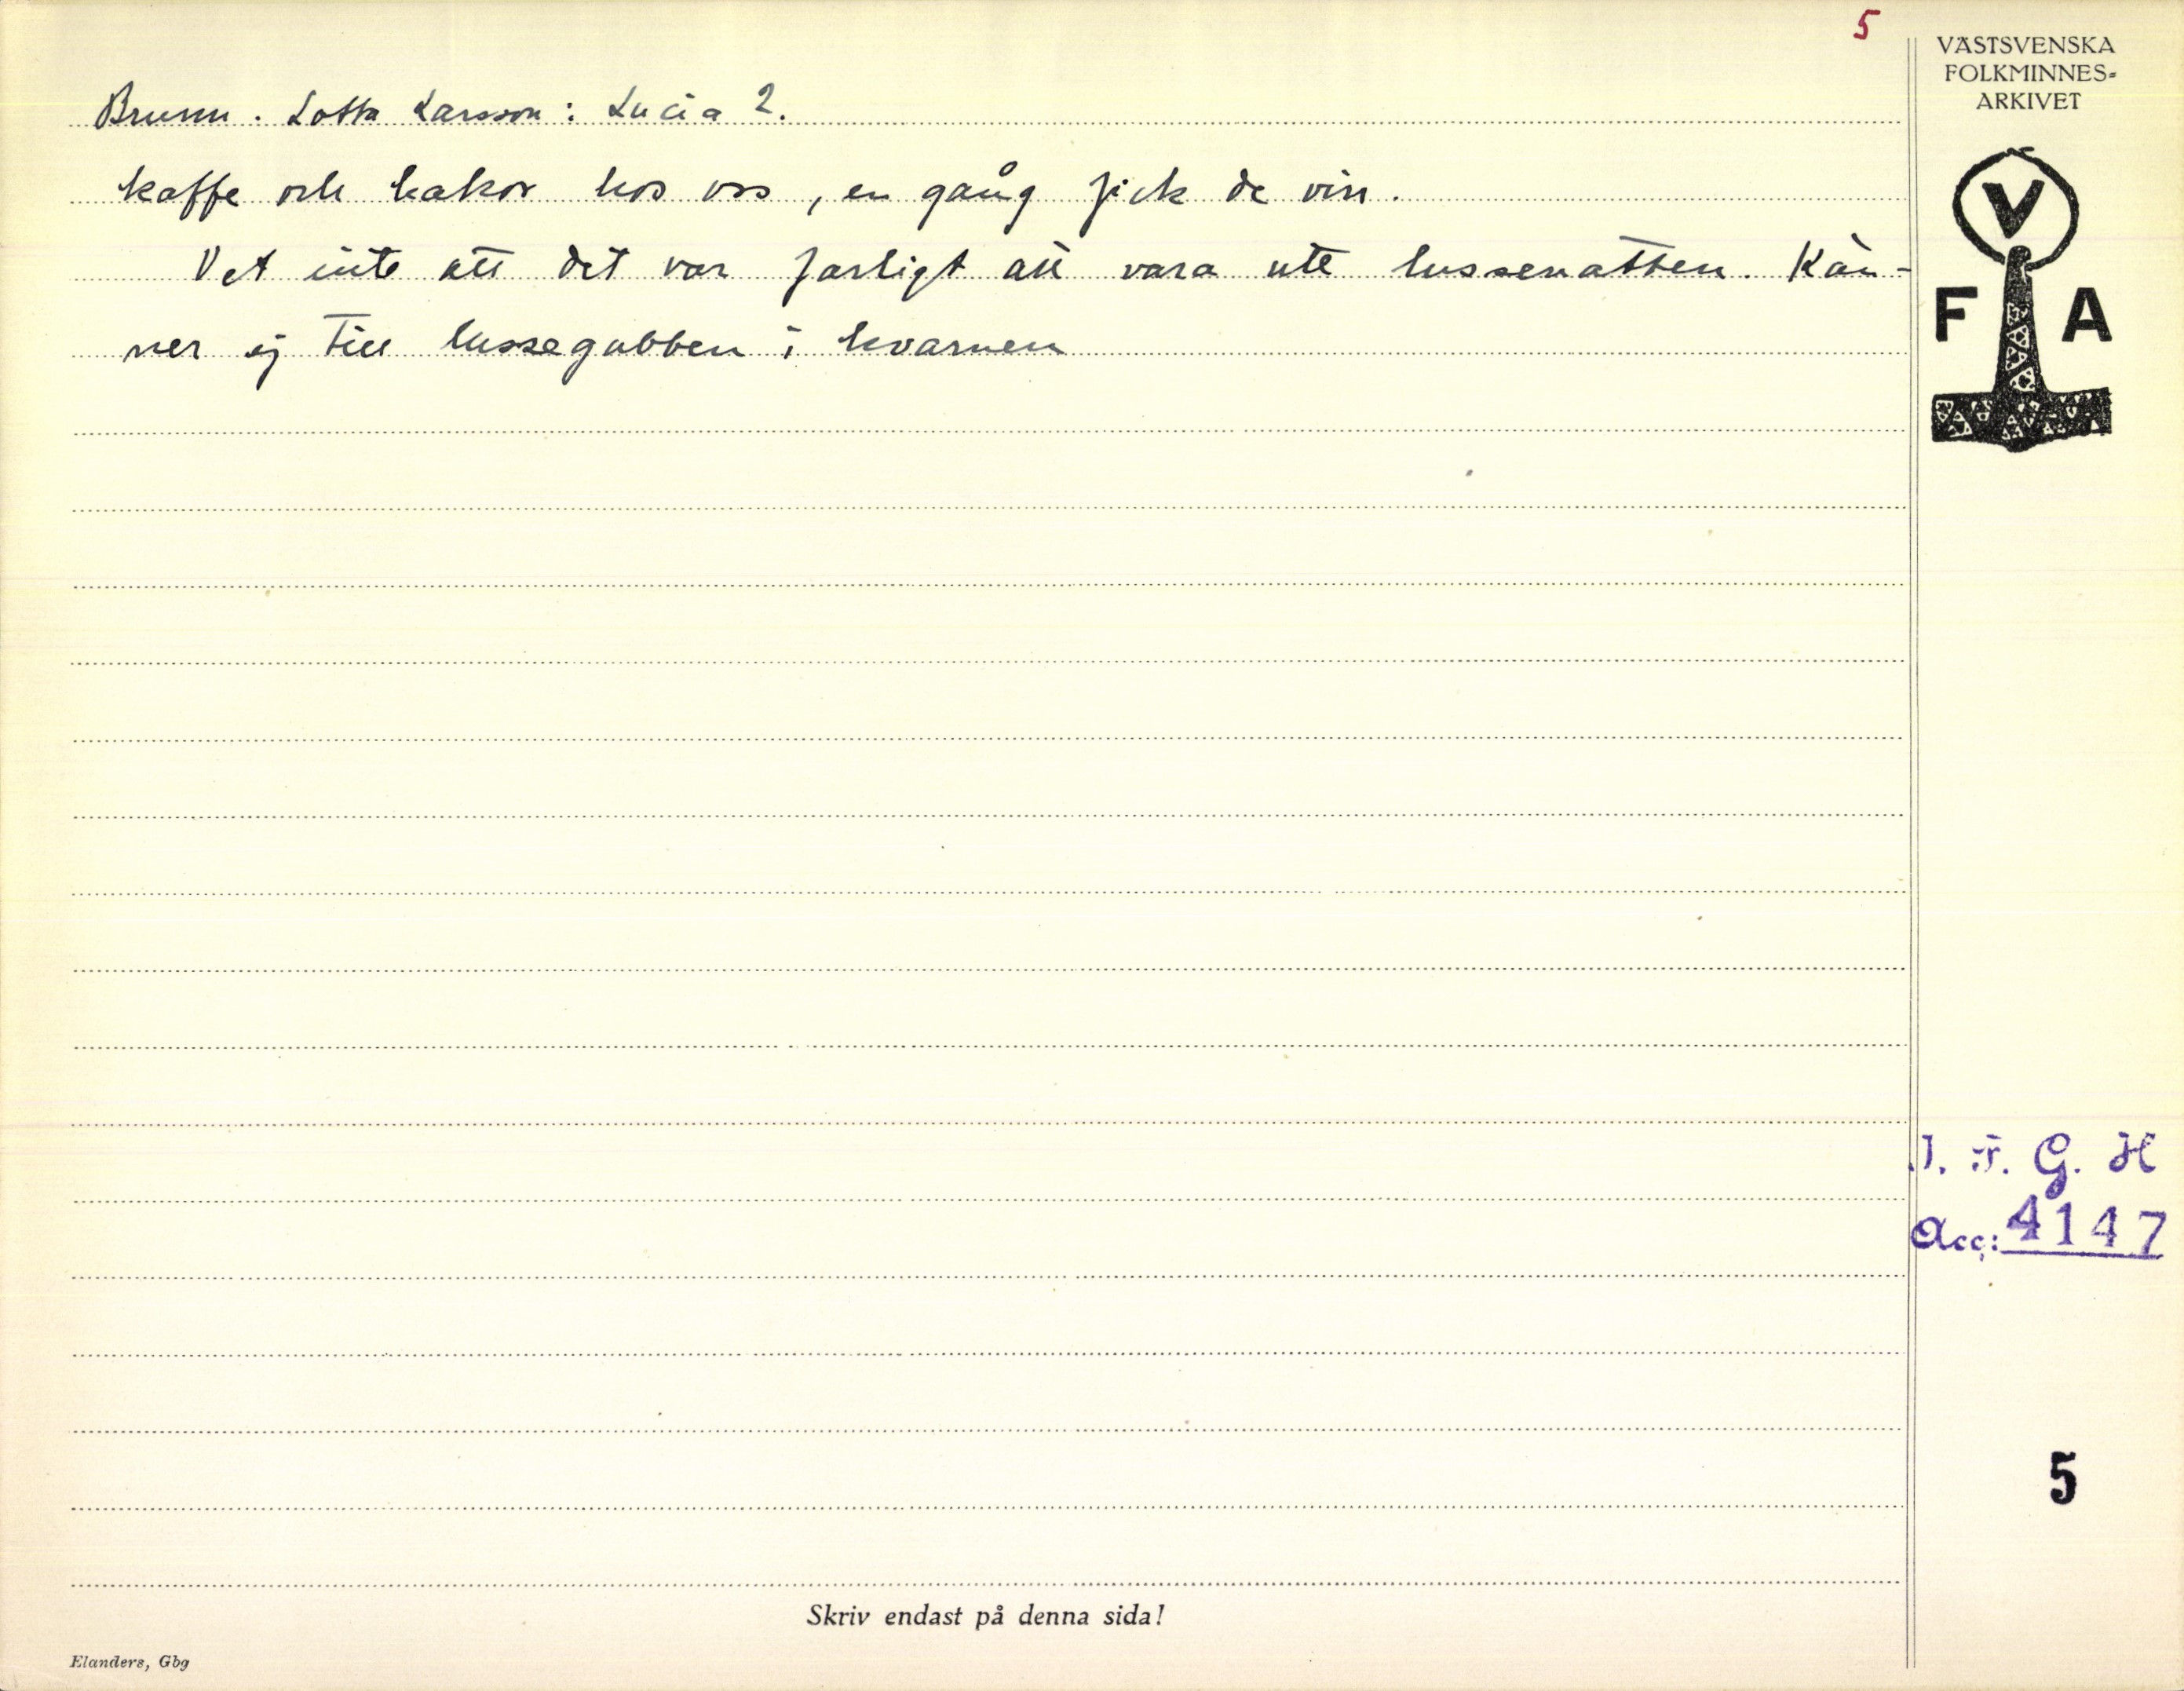 5
Brunn. Lotta Larsson: Lucia 2.
kaffe och kakor hos oss, en gång fick de vin.
Vet inte att det var farligt att vara ute lussenatten. Kän-
ner ej till lussegubben i kvarnen
VÄSTSVENSKA
FOLKMINNES-
ARKIVET
V
F A
I. F. G. H
Acc: 4147
5
Skriv endast på denna sida!
Elanders, Gbg